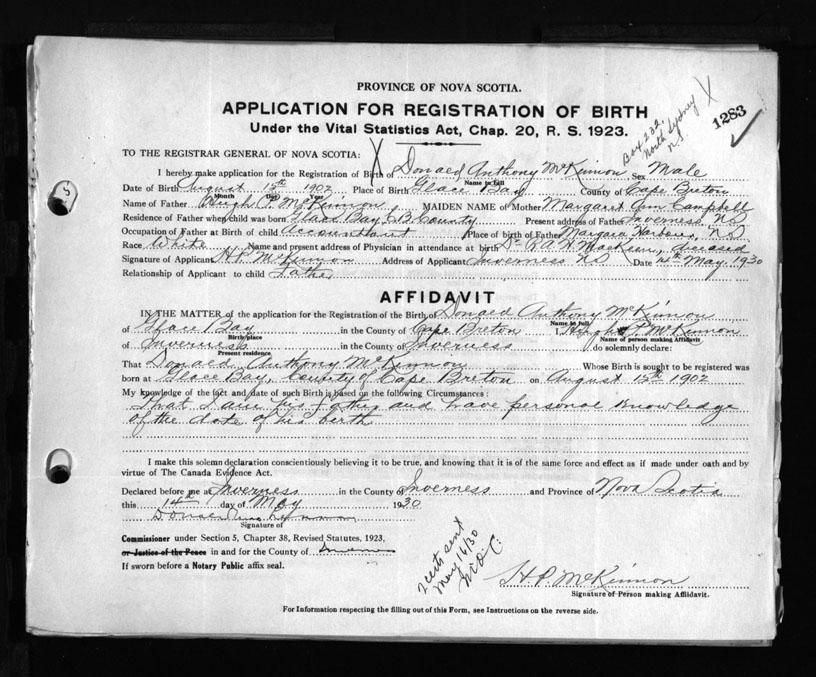 PROVINCE OF NOVA SCOTIA.
APPLICATION FOR REGISTRATION OF BIRTH
Under the Vital Statistics Act, Chap. 20, R. S. 1923.
Box 232, North Sydney N.S.
X
1283
5
TO THE REGISTRAR GENERAL OF NOVA SCOTIA: X
I hereby make application for the Registration of Birth of Donald Anthony McKinnon Sex Male
Name in full
Date of Birth August 15th 1902 Place of Birth Glace Bay County of Cape Breton
Month Day Year
Name of Father Hugh P. McKinnon MAIDEN NAME of Mother Margaret Ann Campbell
Residence of Father when child was born Glace Bay C.B. County Present address of Father Inverness NS
Occupation of Father at Birth of child Accountant Place of birth of Father Margaree Harbour, NS
Race White Name and present address of Physician in attendance at birth Dr. deceased
Signature of Applicant H P McKinnon Address of Applicant Inverness NS Date 14th May 1930
Relationship of Applicant to child Father
AFFIDAVIT
IN THE MATTER of the application for the Registration of the Birth of Donald Anthony McKinnon
Name in full
of Glace Bay in the County of Cape Breton I, Hugh P. McKinnon
Birthplace Name of person making Affidavit
of Inverness in the County of Inverness do solemnly declare:
Present residence
That Donald Anthony McKinnon Whose Birth is sought to be registered was
born at Glace Bay, County of Cape Breton on August 15th 1902
My knowledge of the fact and date of such Birth is based on the following Circumstances:
That I am his father and have personal knowledge
of the date of his birth
I make this solemn declaration conscientiously believing it to be true, and knowing that it is of the same force and effect as if made under oath and by
virtue of The Canada Evidence Act.
Declared before me at Inverness in the County of Inverness and Province of Nova Scotia
this 14th day of May 1930
Signature of
Commissioner under Section 5, Chapter 38, Revised Statutes, 1923,
or Justice of the Peace in and for the County of Inverness
If sworn before a Notary Public affix seal.
sent
May 16/30
H.P. McKinnon
Signature of Person making Affidavit.
For Information respecting the filling out of this Form, see Instructions on the reverse side.